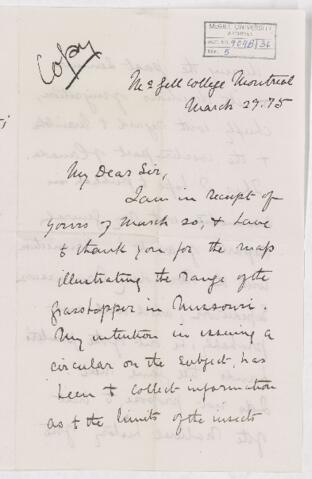 Copy
McGILL UNIVERSITY
ARCHIVES
ACC. NO. 909B/36
REF. 5
McGill College Montreal
March 29. 75
My Dear Sir,
I am in receipt of
yours of March 20, & have
to thank you for the map
illustrating the range of the
grasshopper in Missouri.
My intention in issuing a
circular on the subject, has
been to collect information
as to the limits of the insects